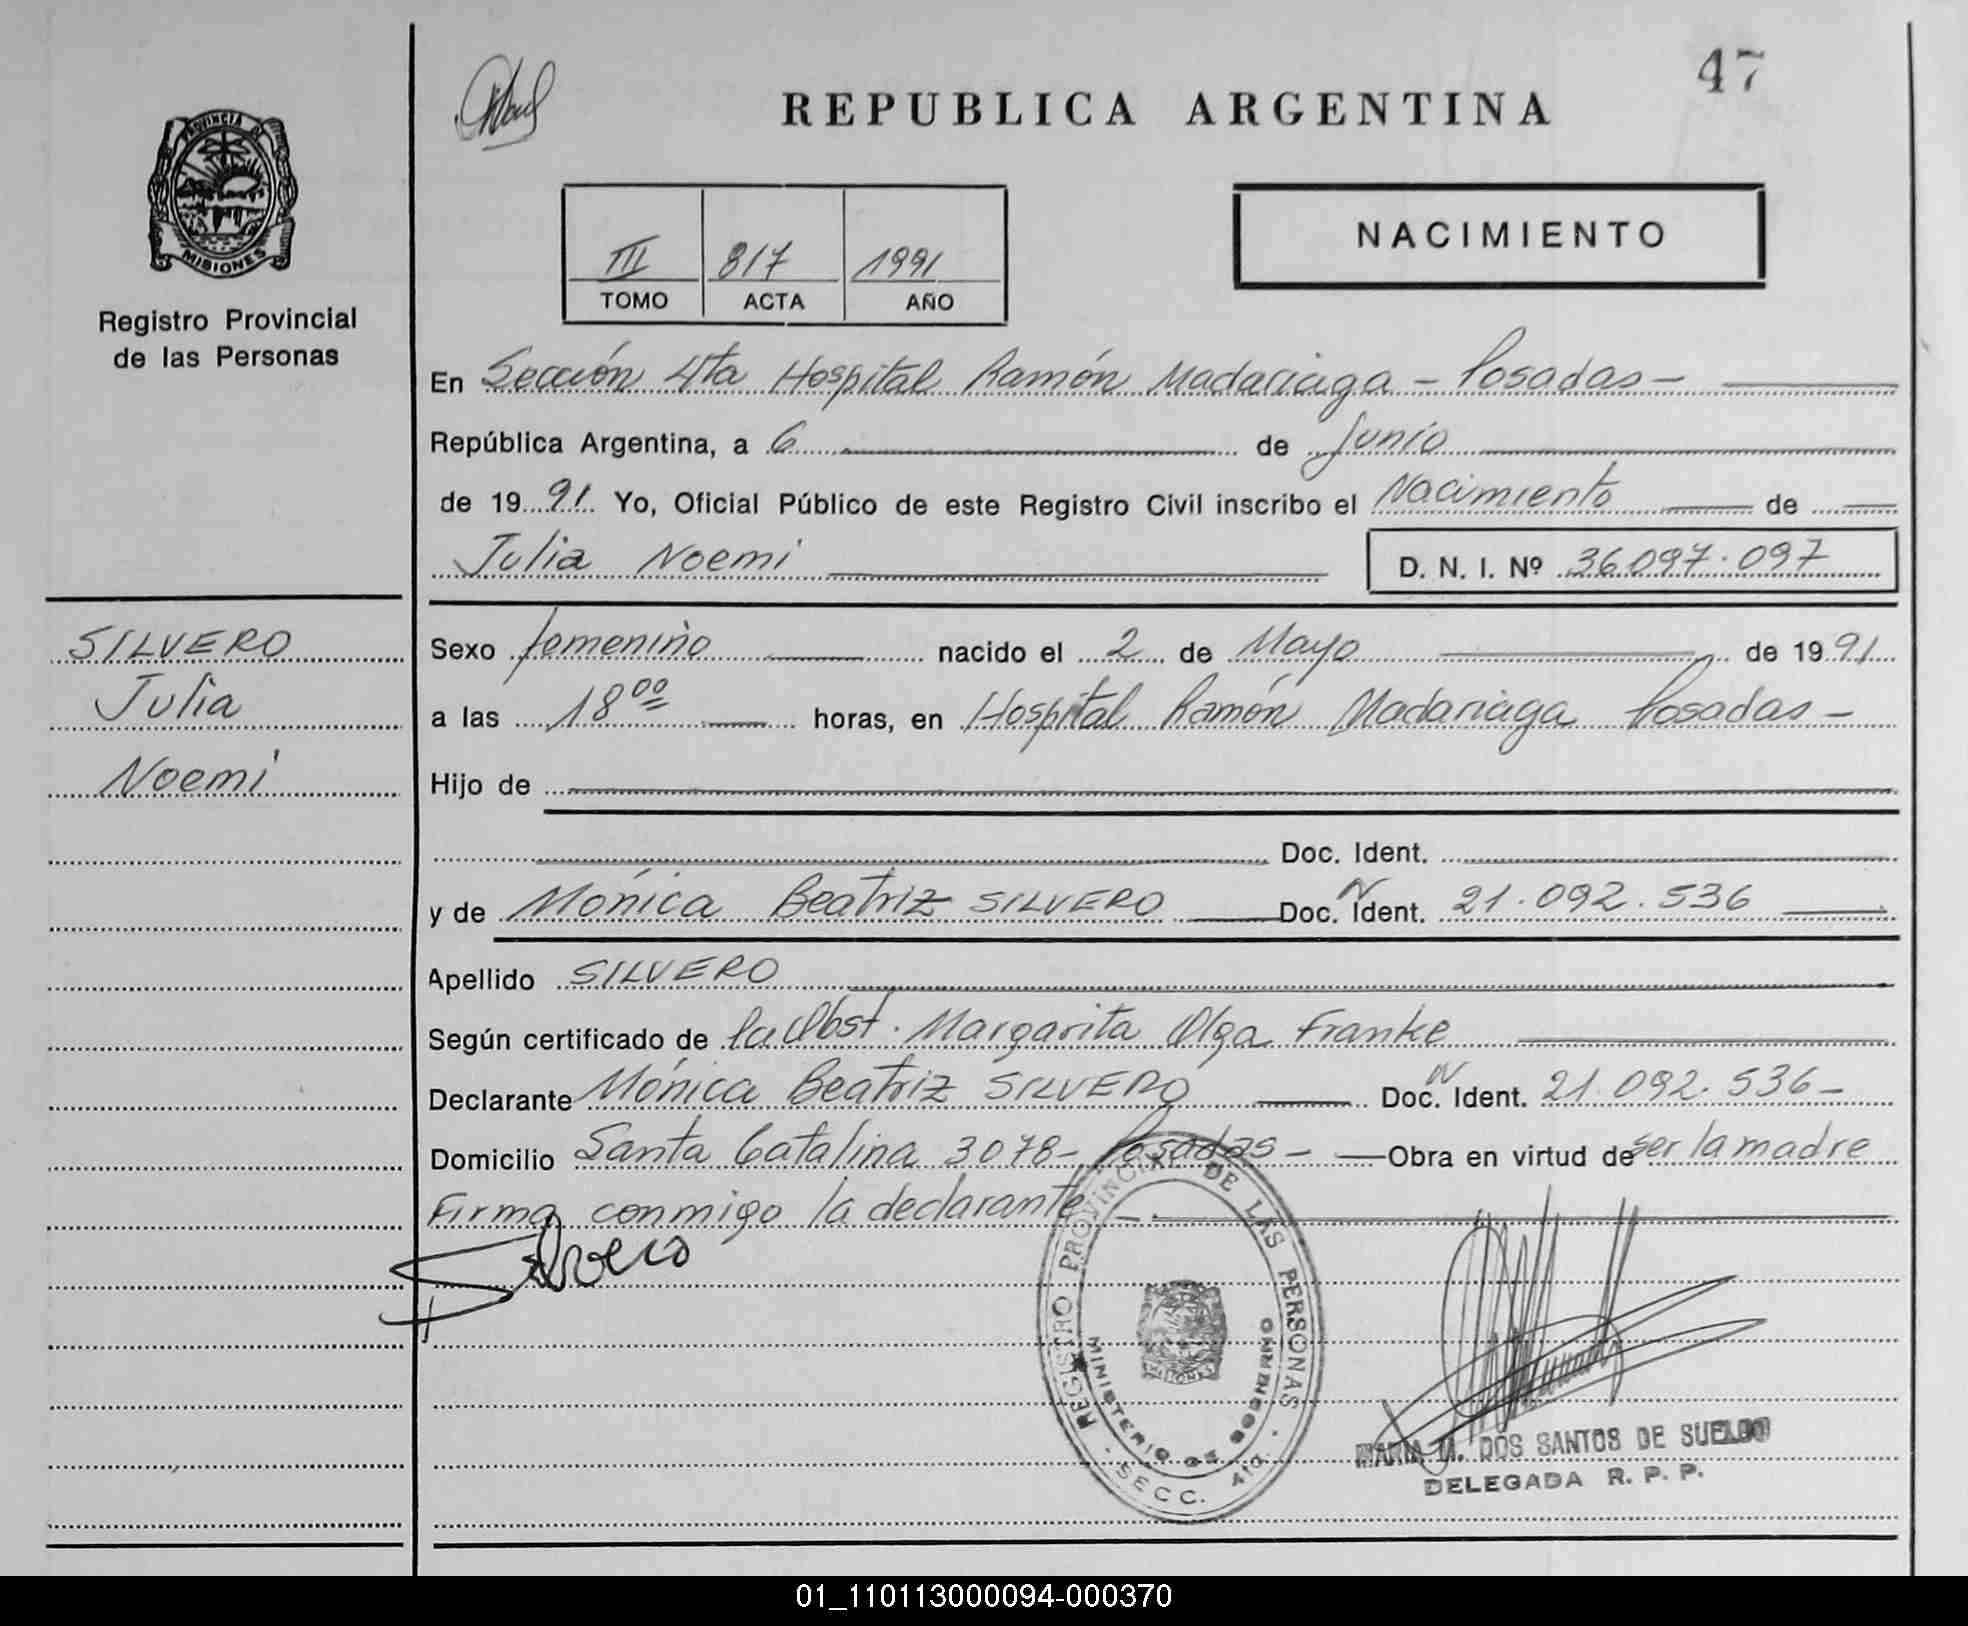 47
REPUBLICA ARGENTINA
PROVINCIA DE
MISIONES
Registro Provincial
de las Personas
NACIMIENTO
III 817 1991
TOMO ACTA AÑO
En Sección 4ta Hospital Ramón Madariaga - Posadas -
República Argentina, a 6 de Junio
de 1991 Yo, Oficial Público de este Registro Civil inscribo el Nacimiento de
Julia Noemi D. N. I. Nº 36.097.097
SILVERO
Julia
Noemi
Sexo femenino nacido el 2 de Mayo de 1991
a las 18 00 horas, en Hospital Ramón Madariaga Posadas -
Hijo de
Doc. Ident.
y de Mónica Beatriz SILVERO Doc. N Ident. 21.092.536
Apellido SILVERO
Según certificado de la Obst. Margarita Olga Franke
Declarante Mónica Beatriz SILVERO Doc. N Ident. 21.092.536 -
Domicilio Santa Catalina 3078 - Posadas - Obra en virtud de ser la madre
Firma conmigo la declarante -
Silvero
REGISTRO PROVINCIAL DE LAS PERSONAS
MINISTERIO DE GOBIERNO
SECC. 4ta.
MARIA M. DOS SANTOS DE SUELDO
DELEGADA R. P. P.
01_110113000094-000370